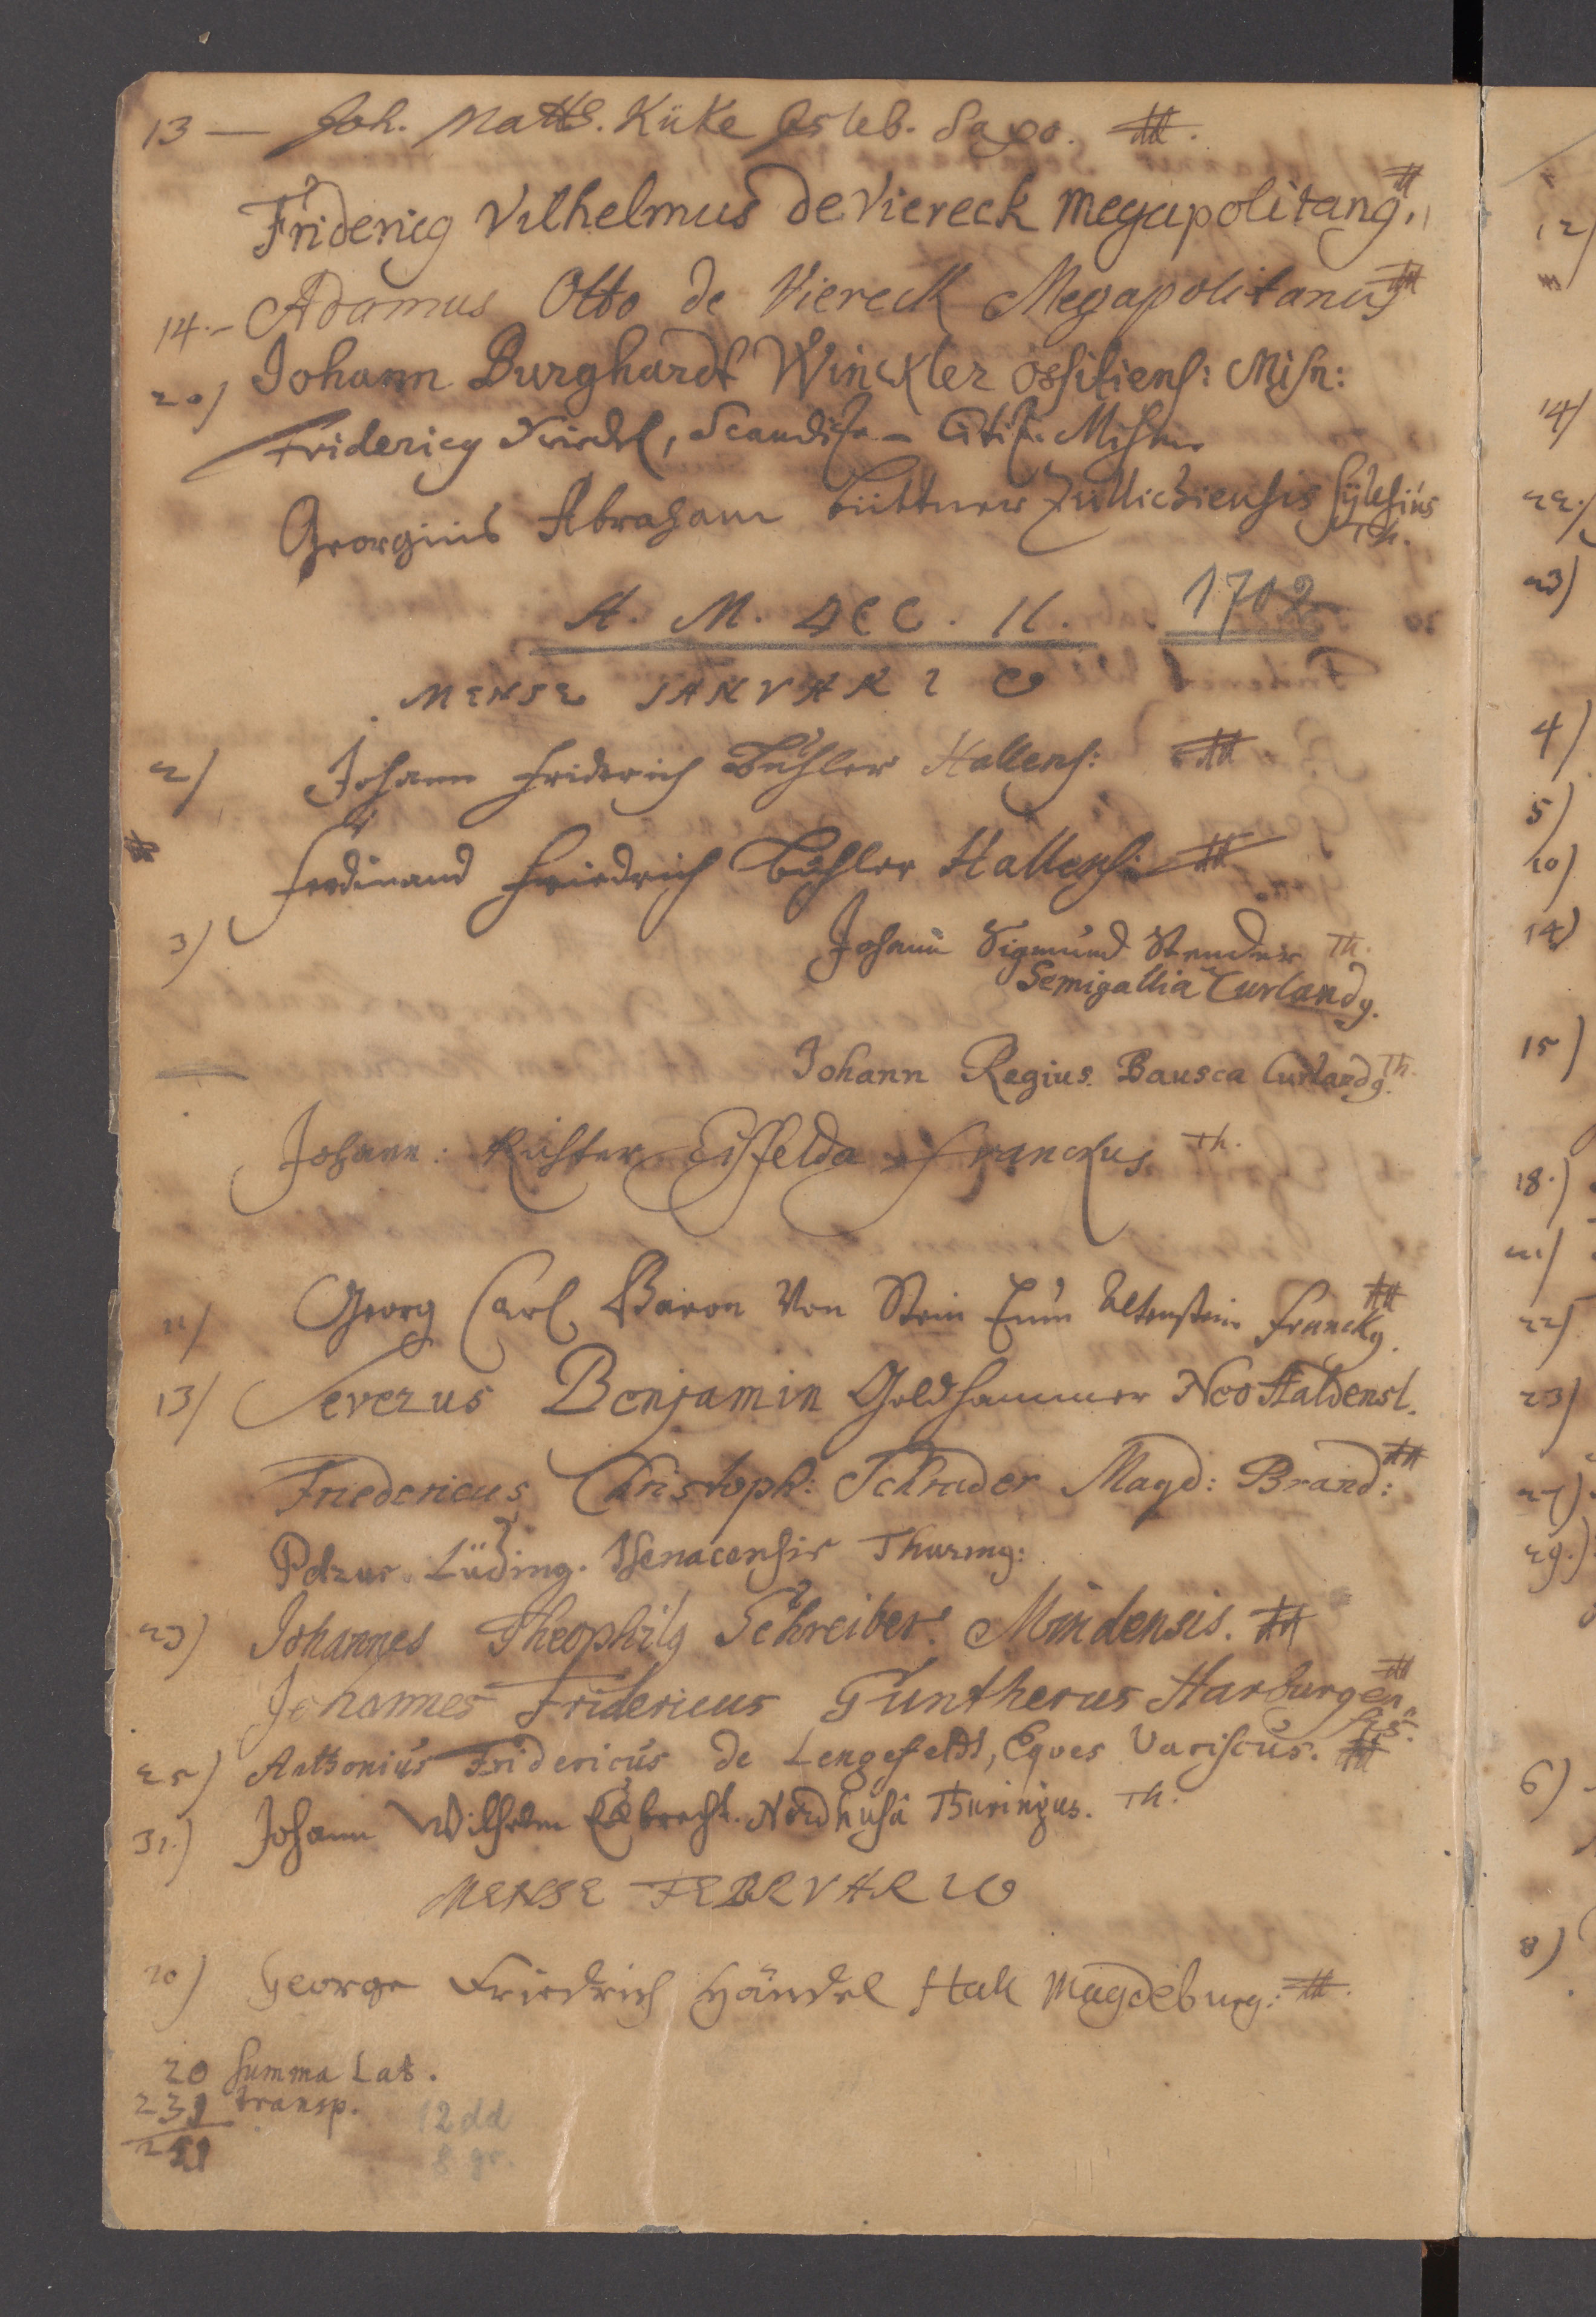 13 — Joh. Matth. Küke Isleb. Saxo.
Fridericg Vilhelmus de Viereck Megapolitang.
14.- Adamus Otto de Viereck Megapolitanus
20) Johann Burghardt Winckler Ossitiens: Misn:
Fridericg
Georgius Abraham Büttner Züllichiensis Sylesius
Th.
A. M. DCC. II. 1702
MENSE JANVARIO
2) Johann Friderich Bühler Hallens:
Ferdinand Friedrich Bühler Hallens:
3) Johann Sigmund Stender Th.
Semigallia Curlandg.
— Johann Regius Bausca Curlandg. Th.
Johann: Richter Eisfelda Franckus Th.
11) Georg Carl Baron Von Stein zum Altenstein Franckg.
13) Severus Benjamin Goldhammer Neo Haldensl.
Friedericus Christoph: Schrader Magd: Brand:
Petrus Lüding. Isenacensis Thuring:
23) Johannes Theophilg Schreiber. Mindensis.
Johannes Fridericus Güntherus Harburgen
sis.
25) Anthonius Fridericus de Lengefeldt, Eques Variscus.
31.) Johann Wilhelm Nordhusâ Thuringus. Th.
MENSE FEBRVARIO
10) George Friedrich Händel Hall Magdeburg:
20 Summa Lat.
231 transp.
251
12 dd
8 gr.
12)
14)
22.)
23)
4)
5)
10)
14)
15)
18.)
21)
22)
23)
27)
29.)
6)
8)